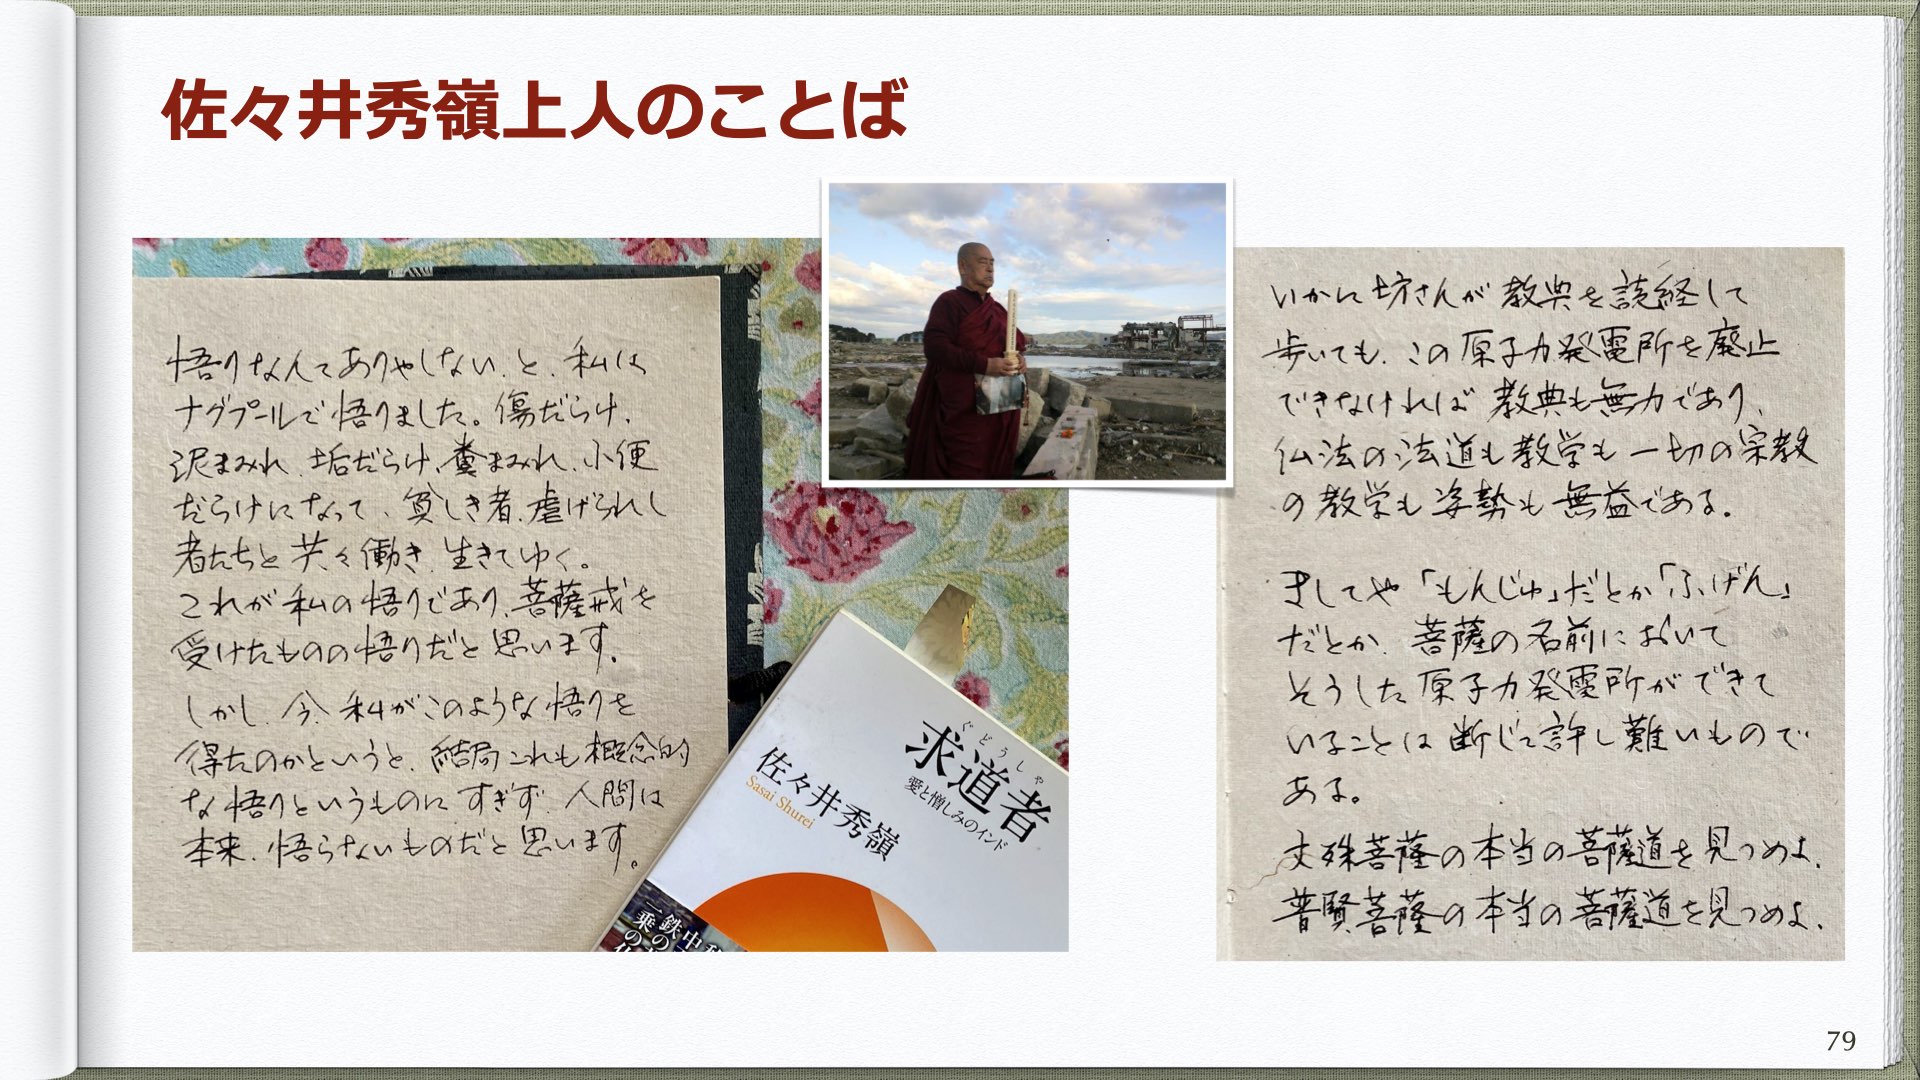 佐々井秀嶺上人のことば
悟りなんてありゃしない、と、私は
ナグプールで悟りました。傷だらけ、
泥まみれ、垢だらけ、糞まみれ、小便
だらけになって、貧しき者、虐げられし
者たちと共々働き、生きてゆく。
これが私の悟りであり、菩薩戒を
受けたものの悟りだと思います。
しかし、今、私がこのような悟りを
得たのかというと、結局これも概念的
な悟りというものにすぎず、人間は
本来、悟らないものだと思います。
ぐどうしゃ
求道者
愛と憎しみのインド
佐々井秀嶺
Sasai Shurei
いかに坊さんが教典を読経して
歩いても、この原子力発電所を廃止
できなければ教典も無力であり、
仏法の法道も教学も一切の宗教
の教学も姿勢も無益である。
ましてや「もんじゅ」だとか「ふげん」
だとか、菩薩の名前において
そうした原子力発電所ができて
いることは断じて許し難いもので
ある。
文殊菩薩の本当の菩薩道を見つめよ、
普賢菩薩の本当の菩薩道を見つめよ、
79